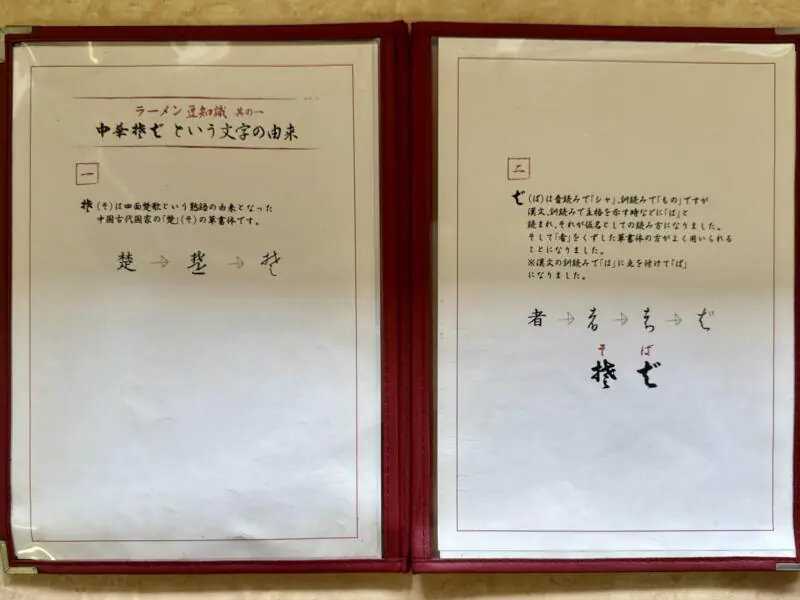 ラーメン豆知識 其の一
中華楚者゛という文字の由来
一
楚(そ)は四面楚歌という熟語の由来となった
中国古代国家の「楚」(そ)の草書体です。
楚→楚→楚
二
者゛(ば)は音読みで「シャ」、訓読みで「もの」ですが
漢文、訓読みで主格を示す時などに「は」と
読まれ、それが仮名としての読み方になりました。
そして「者」をくずした草書体の方がよく用いられる
ことになりました。
※漢文の訓読みで「は」に点を付けて「ば」
になりました。
者→者→者→者゛
そ ば
楚者゛